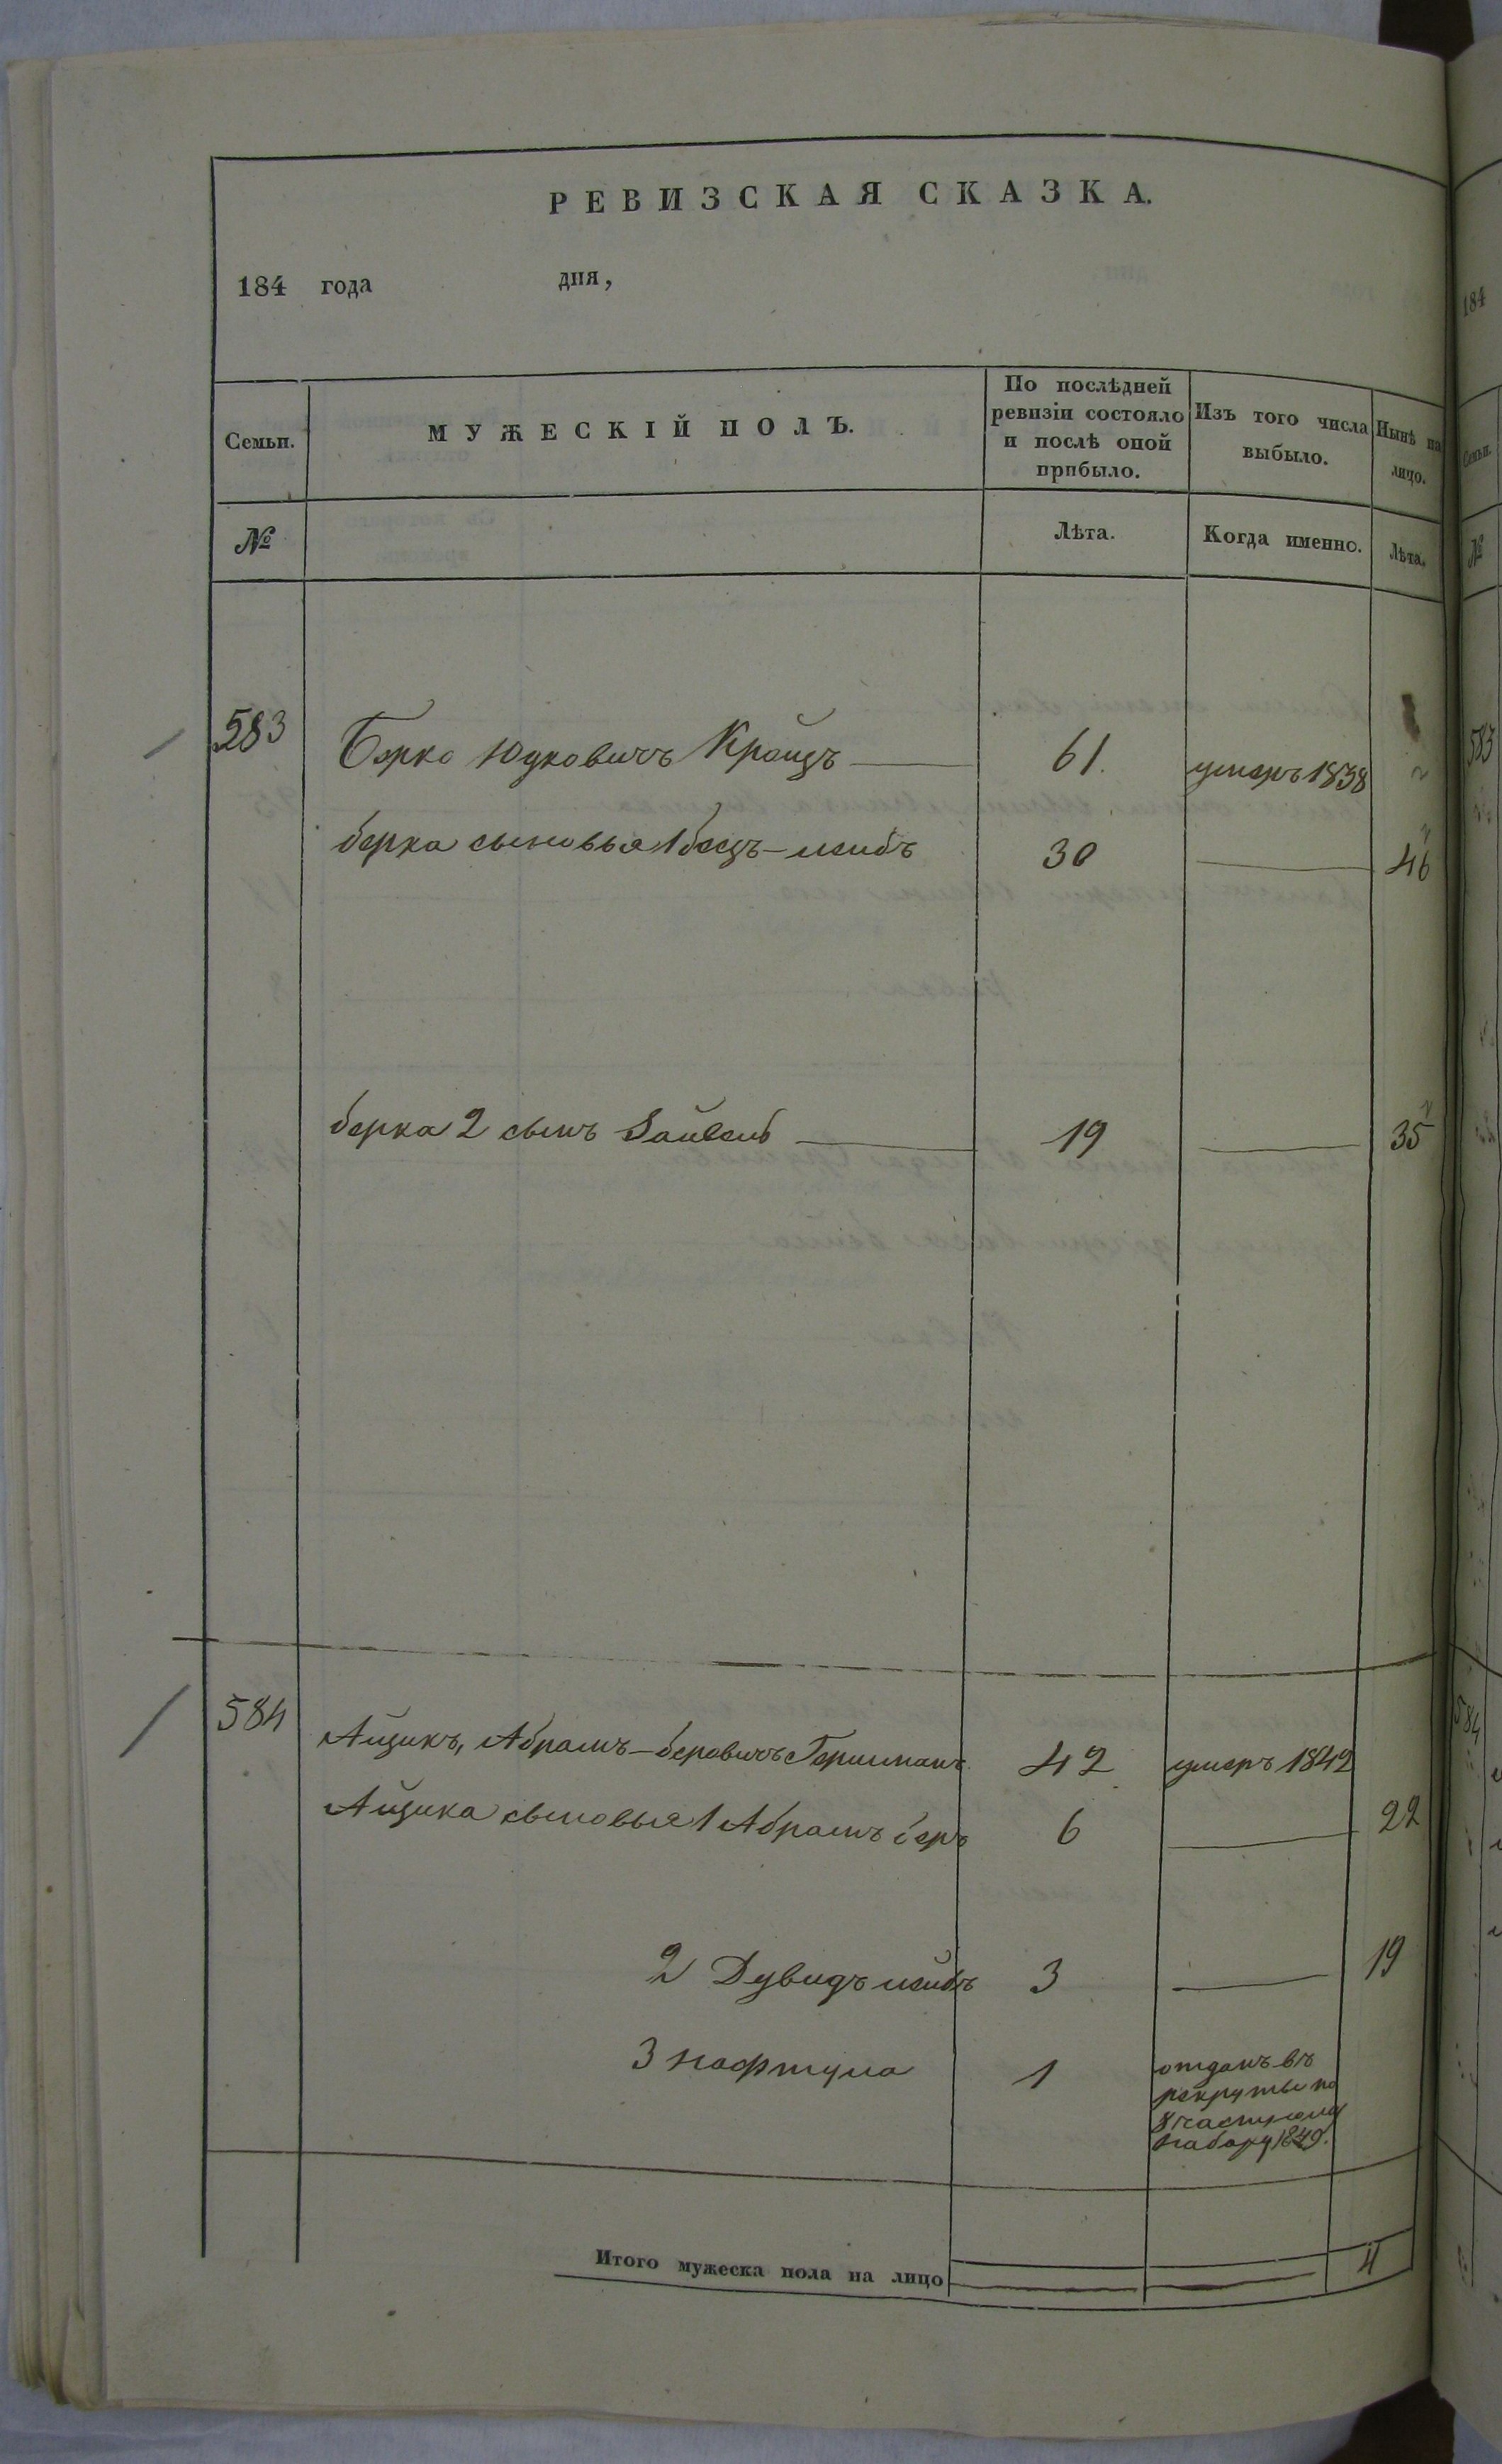 РЕВИЗСКАЯ СКАЗКА.
184 года дня,
Семьи. МУЖЕСКІЙ ПОЛЪ. По послѣдней ревизіи состояло и послѣ оной прибыло. Изъ того числа выбыло. Нынѣ на лицо.
№ Лѣта. Когда именно. Лѣта.
583 Берко Юдковичъ Кройцъ 61. умеръ 1838
берка сыновья 1 лейбъ 30 46
берка 2 сынъ Зайвель 19 35
584 Айзикъ, Абрамъ-беровичъ Гершманъ 42 умеръ 1842
Айзика сыновья 1 Абрамъ беръ 6 22
2 Дувидъ лейбъ 3 19
3 нафтула 1 отданъ въ
рекруты по
частному
набору 1849.
Итого мужеска пола на лицо 4